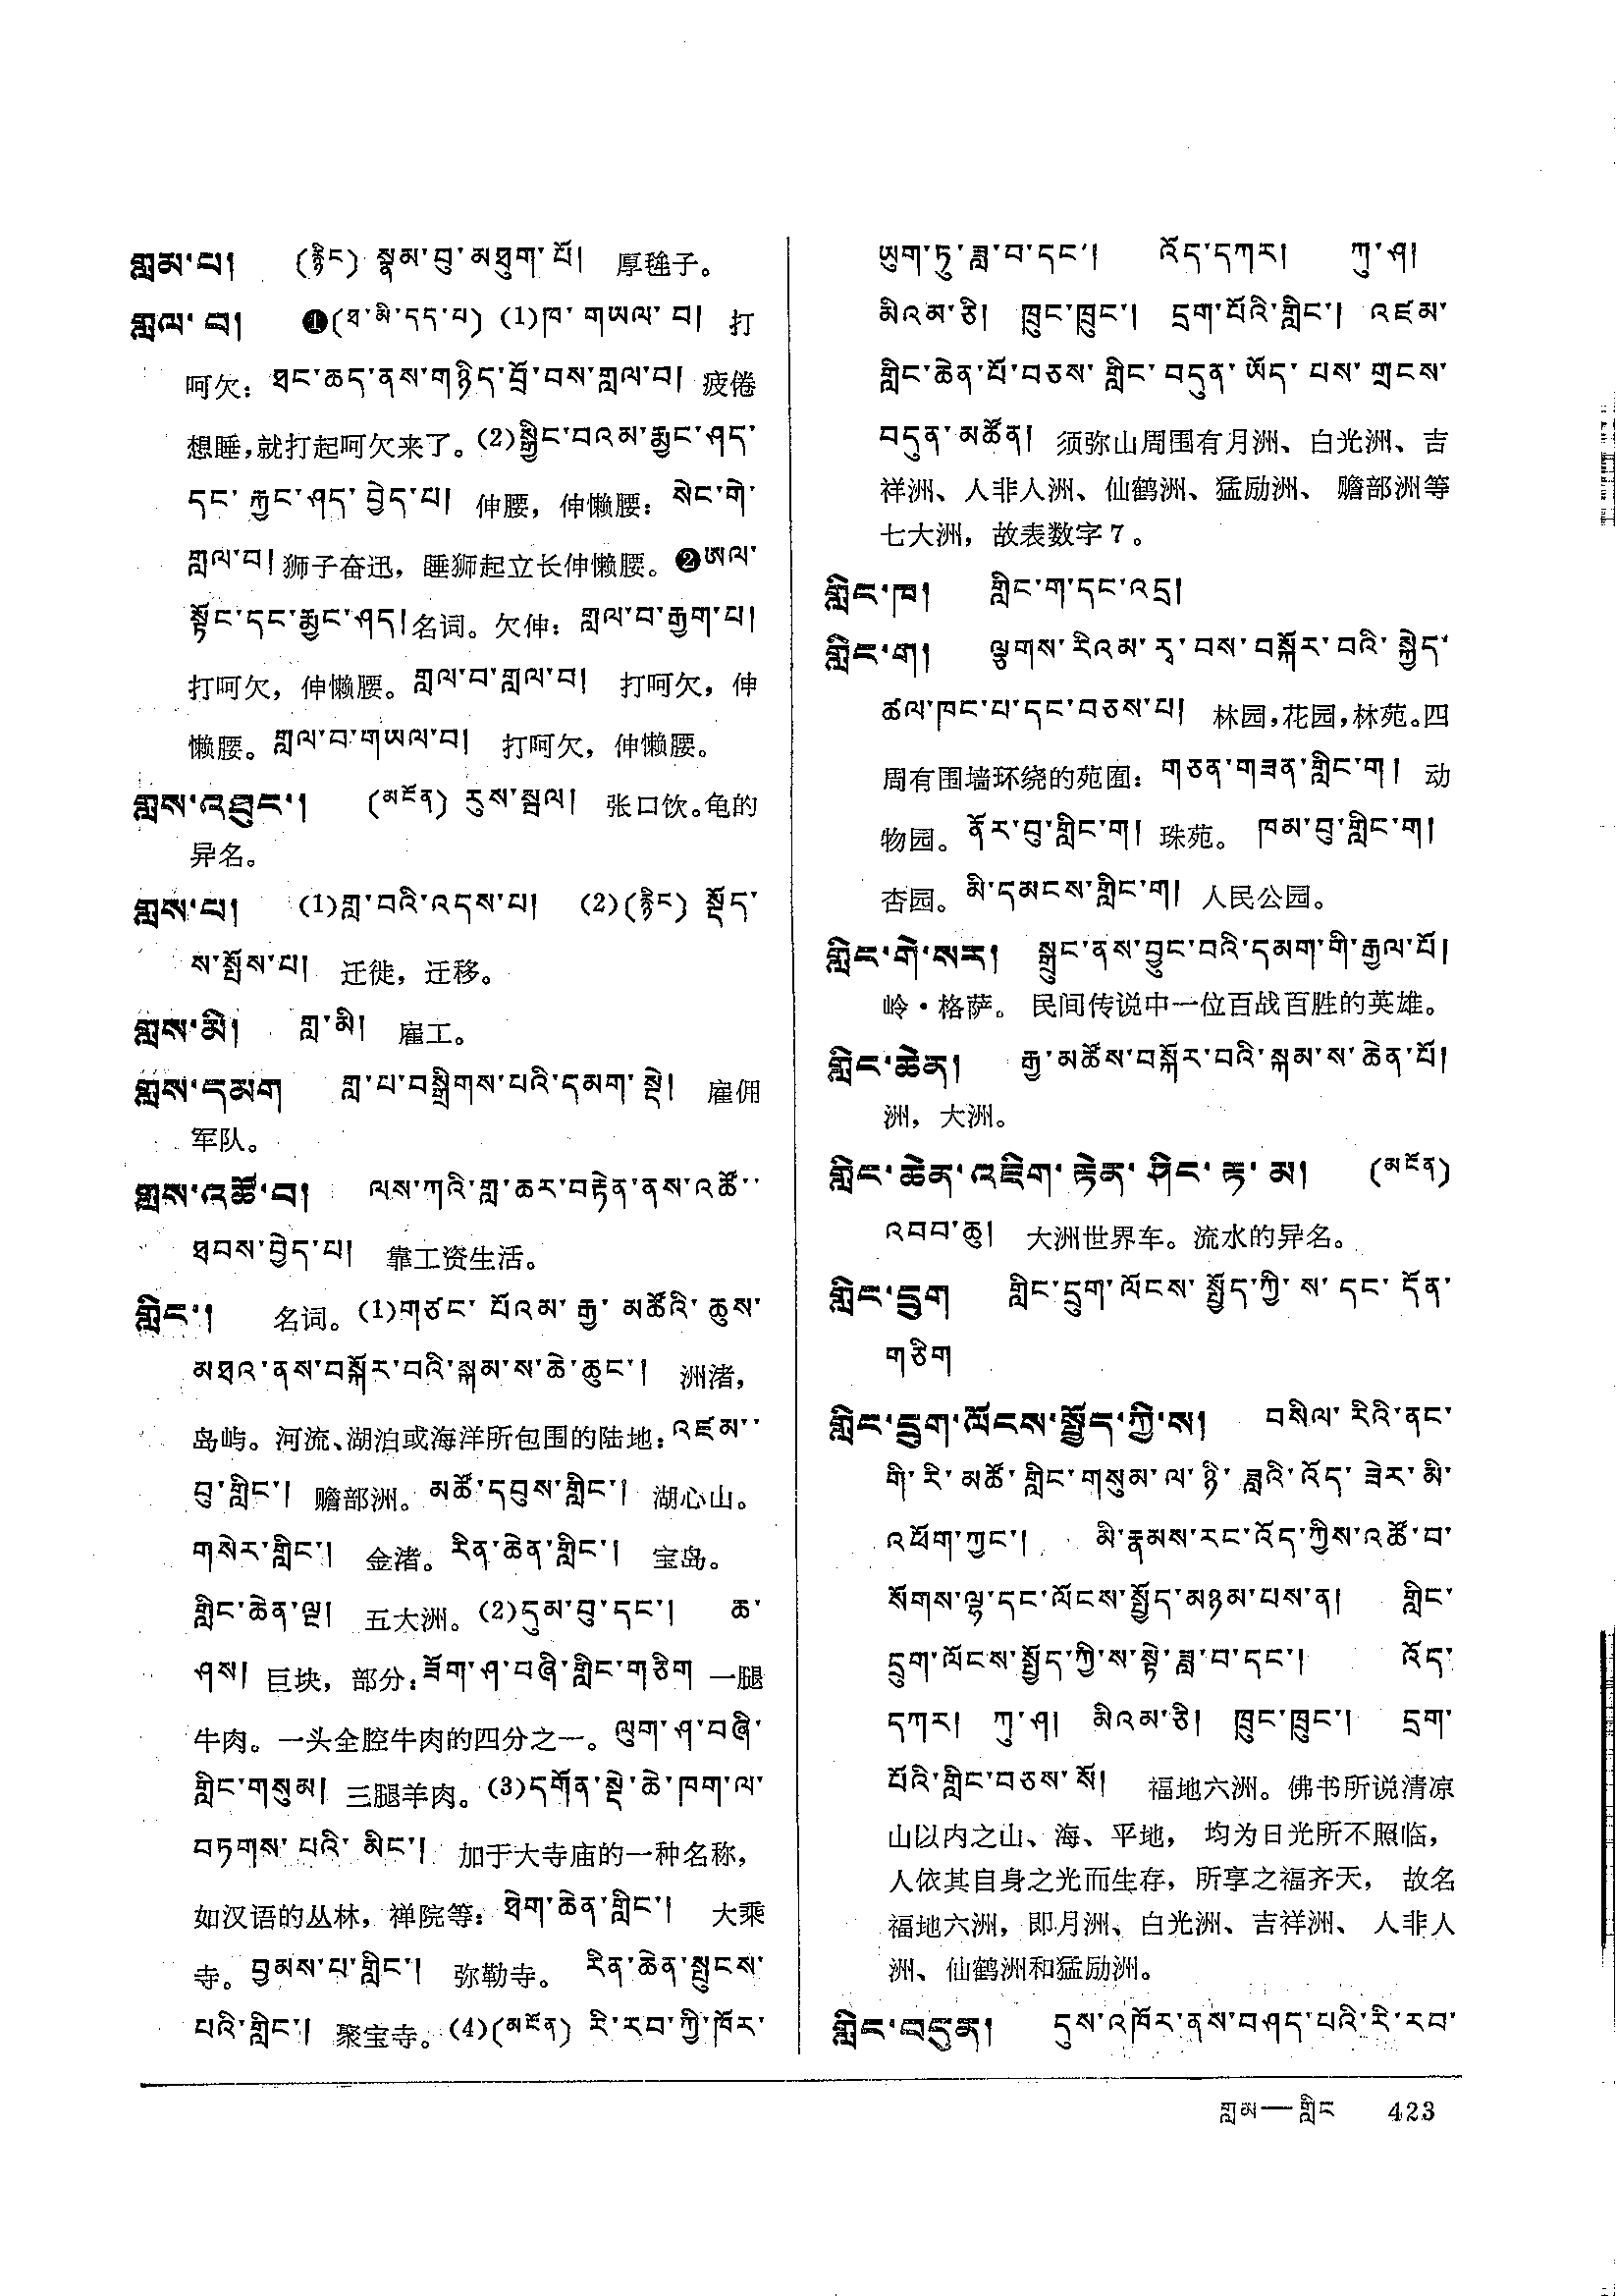 གླམ་པ། (རྙིང) སྣམ་བུ་མཐུག་པོ། 厚氆子。
གླལ་བ། ❶(ཐ་མི་དད་པ) (1)ཁ་གཡལ་བ། 打
呵欠：ཐང་ཆད་ནས་གཉིད་བྲོ་བས་གླལ་བ། 疲倦
想睡，就打起呵欠来了。(2)སྒྱིང་བའམ་རྨྱང་ཤད་
དང་རྐྱང་ཤད་བྱེད་པ། 伸腰，伸懒腰：སེང་གེ་
གླལ་བ། 狮子奋迅，睡狮起立长伸懒腰。❷ཨལ་
སྟོང་དང་རྨྱང་ཤད། 名词。欠伸：གླལ་བ་རྒྱག་པ།
打呵欠，伸懒腰。གླལ་བ་གླལ་བ། 打呵欠，伸
懒腰。གླལ་བ་གཡལ་བ། 打呵欠，伸懒腰。
གླས་འཐུང་། (མངོན) རུས་སྦལ། 张口饮。龟的
异名。
གླས་པ། (1)གླ་བའི་འདས་པ། (2)(རྙིང) སྡོད་
ས་སྤོས་པ། 迁徙，迁移。
གླས་མི། གླ་མི། 雇工。
གླས་དམག གླ་པ་བསྒྲིགས་པའི་དམག་སྡེ། 雇佣
军队。
གླས་འཚོ་བ། ལས་ཀའི་གླ་ཆར་བརྟེན་ནས་འཚོ་
ཐབས་བྱེད་པ། 靠工资生活。
གླིང་། 名词。(1)གཙང་པོའམ་རྒྱ་མཚོའི་ཆུས་
མཐའ་ནས་བསྐོར་བའི་སྐམ་ས་ཆེ་ཆུང་། 洲渚，
岛屿。河流、湖泊或海洋所包围的陆地：འཛམ་
བུ་གླིང་། 赡部洲。མཚོ་དབུས་གླིང་། 湖心山。
གསེར་གླིང་། 金渚。རིན་ཆེན་གླིང་། 宝岛。
གླིང་ཆེན་ལྔ། 五大洲。(2)དུམ་བུ་དང་། ཆ་
ཤས། 巨块，部分：ཟོག་ཤ་བཞི་གླིང་གཅིག 一腿
牛肉。一头全腔牛肉的四分之一。ལུག་ཤ་བཞི་
གླིང་གསུམ། 三腿羊肉。(3)དགོན་སྡེ་ཆེ་ཁག་ལ་
བཏགས་པའི་མིང་། 加于大寺庙的一种名称，
如汉语的丛林，禅院等：ཐེག་ཆེན་གླིང་། 大乘
寺。བྱམས་པ་གླིང་། 弥勒寺。རིན་ཆེན་སྤུངས་
པའི་གླིང་། 聚宝寺。(4)(མངོན) རི་རབ་ཀྱི་ཁོར་
ཡུག་ཏུ་ཟླ་བ་དང་། འོད་དཀར། ཀུ་ཤ།
མིའམ་ཅི། ཁྲུང་ཁྲུང་། དྲག་པོའི་གླིང་། འཛམ་
གླིང་ཆེན་པོ་བཅས་གླིང་བདུན་ཡོད་པས་གྲངས་
བདུན་མཚོན། 须弥山周围有月洲、白光洲、吉
祥洲、人非人洲、仙鹤洲、猛励洲、赡部洲等
七大洲，故表数字7。
གླིང་ཁ། གླིང་ག་དང་འདྲ།
གླིང་ག། ལྕགས་རིའམ་རྭ་བས་བསྐོར་བའི་སྐྱེད་
ཚལ་ཁང་པ་དང་བཅས་པ། 林园，花园，林苑。四
周有围墙环绕的苑囿：གཅན་གཟན་གླིང་ག། 动
物园。ནོར་བུ་གླིང་ག། 珠苑。ཁམ་བུ་གླིང་ག།
杏园。མི་དམངས་གླིང་ག། 人民公园。
གླིང་གེ་སར། སྒྲུང་ནས་བྱུང་བའི་དམག་གི་རྒྱལ་པོ།
岭·格萨。民间传说中一位百战百胜的英雄。
གླིང་ཆེན། རྒྱ་མཚོས་བསྐོར་བའི་སྐམ་ས་ཆེན་པོ།
洲，大洲。
གླིང་ཆེན་འཇིག་རྟེན་ཤིང་རྟ་མ། (མངོན)
འབབ་ཆུ། 大洲世界车。流水的异名。
གླིང་དྲུག གླིང་དྲུག་ལོངས་སྤྱོད་ཀྱི་ས་དང་དོན་
གཅིག
གླིང་དྲུག་ལོངས་སྤྱོད་ཀྱི་ས། བསིལ་རིའི་ནང་
གི་རི་མཚོ་གླིང་གསུམ་ལ་ཉི་ཟླའི་འོད་ཟེར་མི་
འཕོག་ཀྱང་། མི་རྣམས་རང་འོད་ཀྱིས་འཚོ་བ་
སོགས་ལྷ་དང་ལོངས་སྤྱོད་མཉམ་པས་ན། གླིང་
དྲུག་ལོངས་སྤྱོད་ཀྱི་ས་སྟེ་ཟླ་བ་དང་། འོད་
དཀར། ཀུ་ཤ། མིའམ་ཅི། ཁྲུང་ཁྲུང་། དྲག་
པོའི་གླིང་བཅས་སོ། 福地六洲。佛书所说清凉
山以内之山、海、平地，均为日光所不照临，
人依其自身之光而生存，所享之福齐天，故名
福地六洲，即月洲、白光洲、吉祥洲、人非人
洲、仙鹤洲和猛励洲。
གླིང་བདུན། དུས་འཁོར་ནས་བཤད་པའི་རི་རབ་
གླམ—གླིང 423